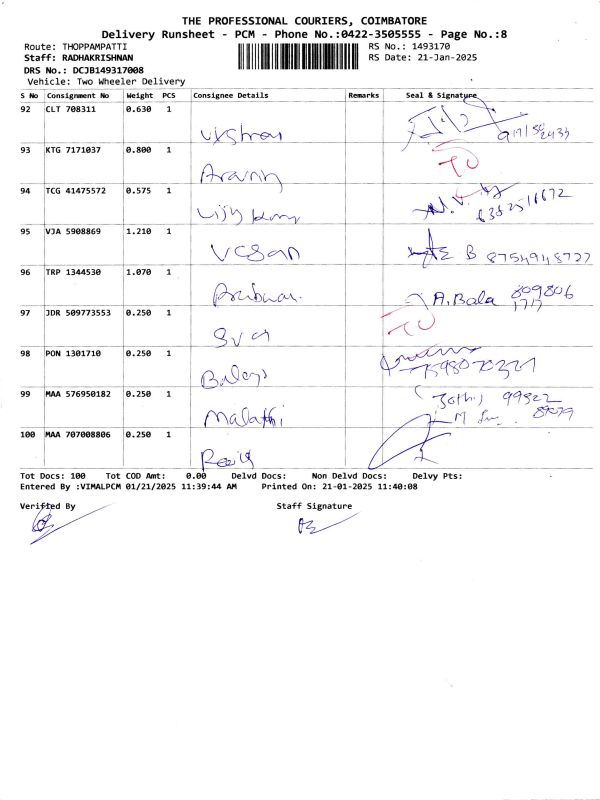 THE PROFESSIONAL COURIERS, COIMBATORE
Delivery Runsheet - PCM - Phone No.:0422-3505555 - Page No.:8
Route: THOPPAMPATTI
RS No.: 1493170
Staff: RADHAKRISHNAN
RS Date: 21-Jan-2025
DRS No.: DCJB149317008
Vehicle: Two Wheeler Delivery
S No Consignment No Weight PCS Consignee Details Remarks Seal & Signature
92 CLT 708311 0.630 1
93 KTG 7171037 0.800 1
94 TCG 41475572 0.575 1
95 VJA 5908869 1.210 1 B 8754948727
96 TRP 1344530 1.070 1 A. Bala 809806
1717
97 JDR 509773553 0.250 1
98 PON 1301710 0.250 1
99 MAA 576950182 0.250 1 Malathi 99922
100 MAA 707008806 0.250 1
Tot Docs: 100 Tot COD Amt: 0.00 Delvd Docs: Non Delvd Docs: Delvy Pts:
Entered By :VIMALPCM 01/21/2025 11:39:44 AM Printed On: 21-01-2025 11:40:08
Verified By Staff Signature